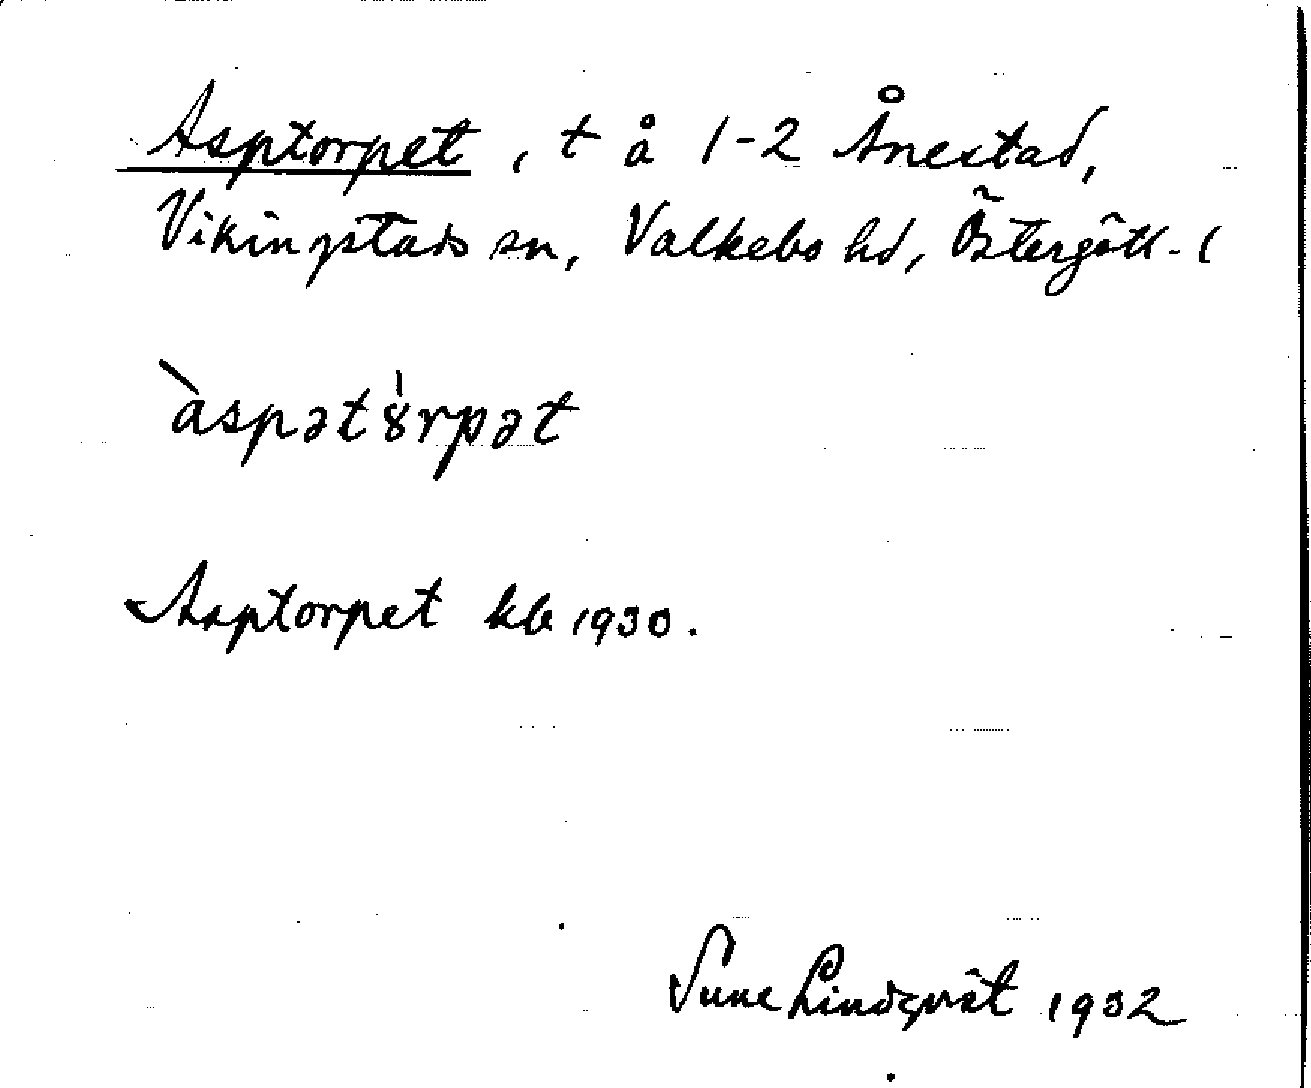 Asptorpet, t å 1-2 Ånestad,
Vikingstads sn, Valkebo hd, Östergötl. l
àspətȣ̍rpət
Asptorpet kb 1930.
Sune Lindqvist 1932